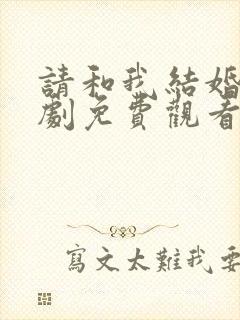 請和我結婚
劇免費觀看
寫文太難我要